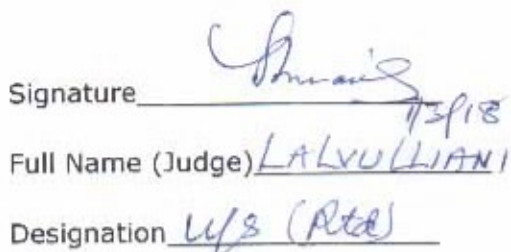 Signature
1/3/18
Full Name (Judge) LALVULLIANI
Designation U/S (Rtd)